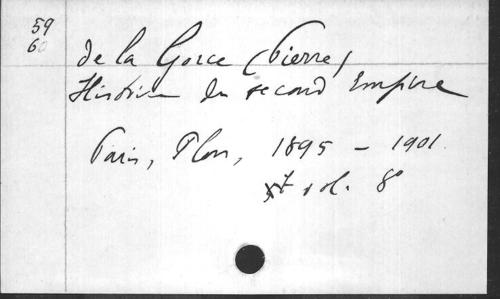 59
60
de la Gorce (Pierre)
Histoire du second Empire
Paris, Plon, 1895 - 1901.
7 vol. 8°